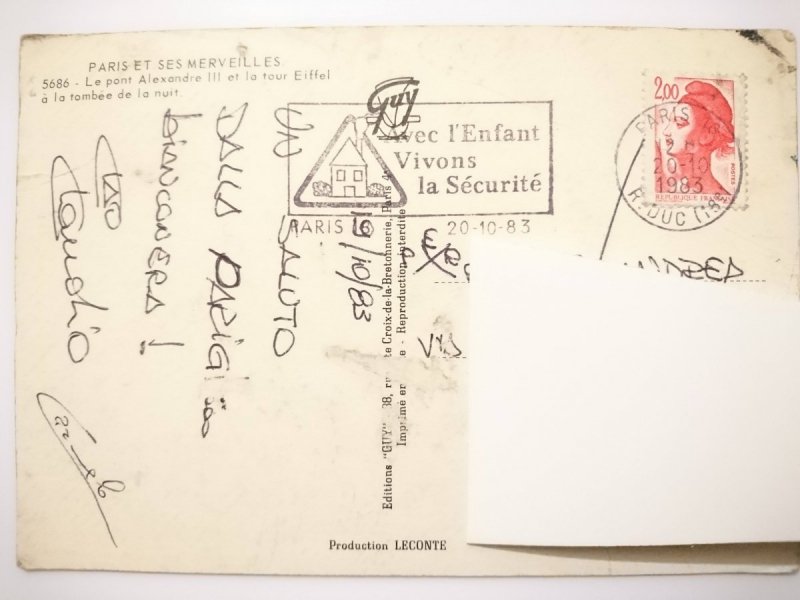 PARIS ET SES MERVEILLES
5686 - Le pont Alexandre III et la tour Eiffel
à la tombée de la nuit.
Guy
Avec l'Enfant
Vivons
la Sécurité
PARIS 18
20-10-83
2,00
POSTES
REPUBLIQUE FRANÇAISE
PARIS
20-10
1983
R. DUC (18e)
UN SALUTO
DALLA PARIGI
BIANCONERA!
CIAO
Claudio
19/10/83
Editions "GUY" 38, rue Ste Croix-de-la-Bretonnerie, Paris 4e
Imprimé en - Reproduction interdite
VIA
Production LECONTE